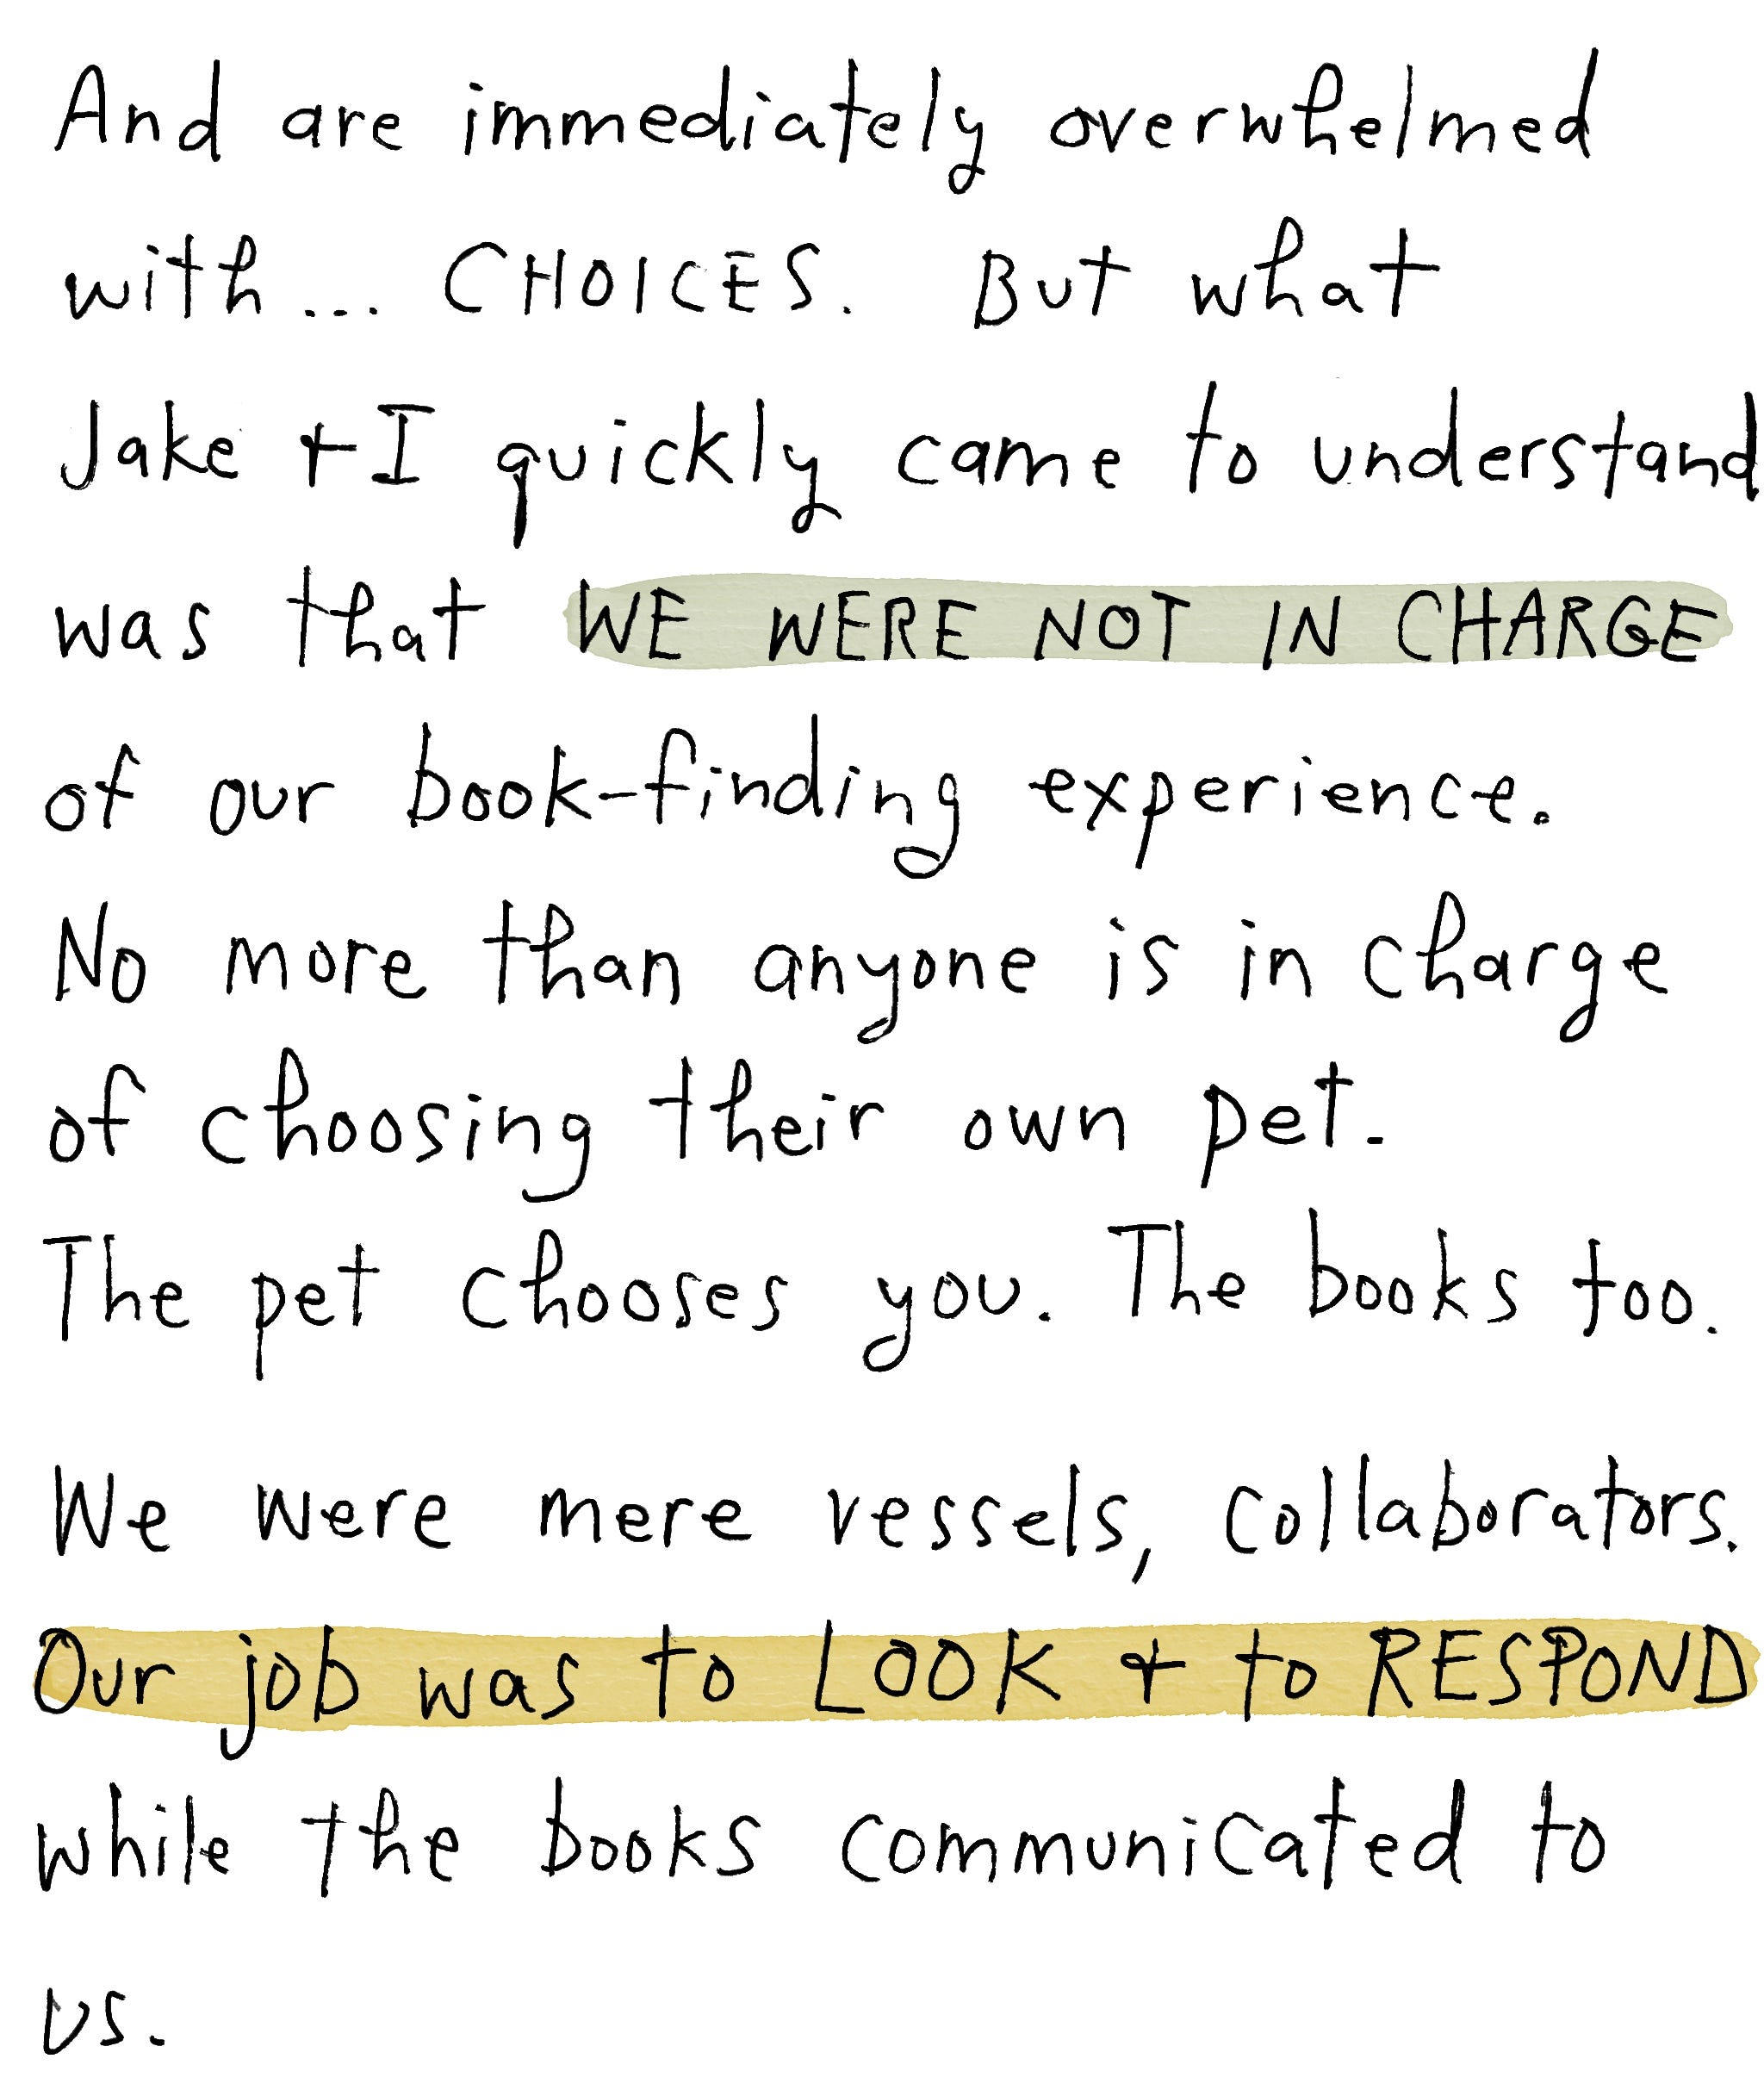 And are immediately overwhelmed
with... CHOICES. But what
Jake + I quickly came to understand
was that WE WERE NOT IN CHARGE
of our book-finding experience.
No more than anyone is in charge
of choosing their own pet.
The pet chooses you. The books too.
We were mere vessels, collaborators.
Our job was to LOOK + to RESPOND
while the books communicated to
us.